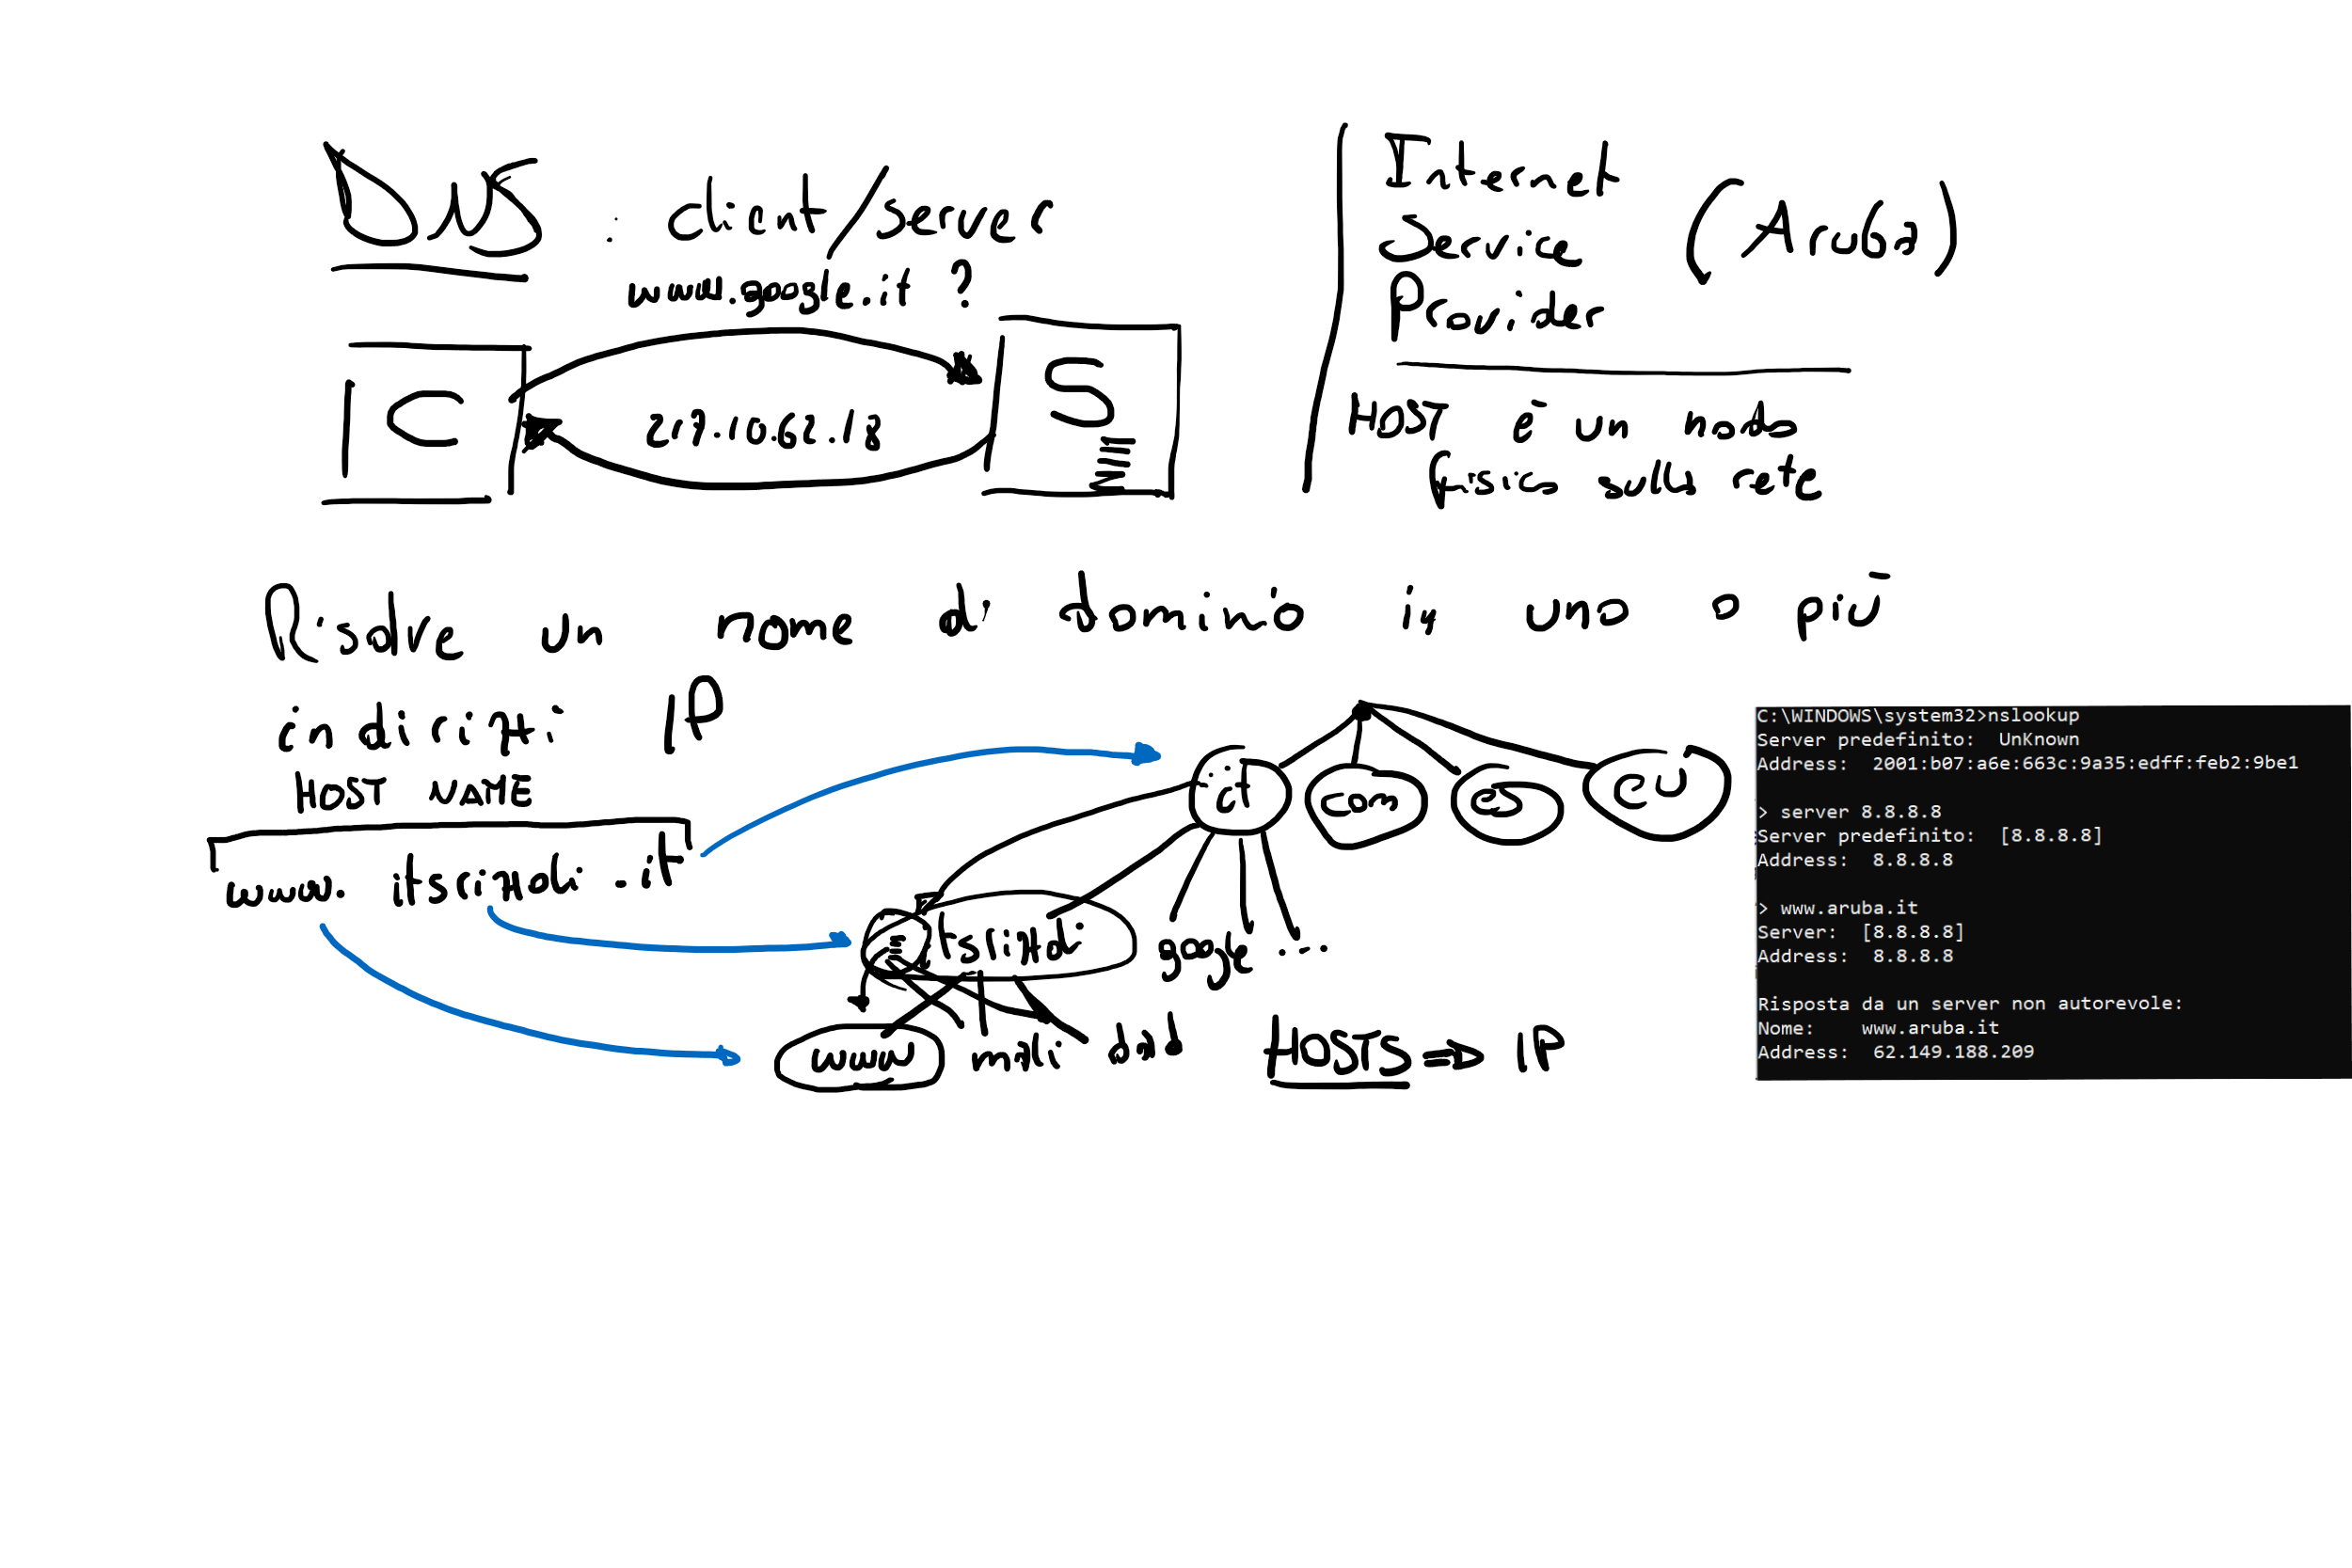 DNS : client/server
www.google.it ?
C
S
217.10.62.18
Internet
Service
Provider
(Aruba)
HOST è un nodo
fisico sulla rete
Risolve un nome di dominio in uno o più
indirizzi IP
HOST NAME
www. itsrizzoli .it
it
com
es
eu
itsrizzoli
google ...
www
mail
dad
HOSTS => IP
C:\WINDOWS\system32>nslookup
Server predefinito:  UnKnown
Address:  2001:b07:a6e:663c:9a35:edff:feb2:9be1
> server 8.8.8.8
Server predefinito:  [8.8.8.8]
Address:  8.8.8.8
> www.aruba.it
Server:  [8.8.8.8]
Address:  8.8.8.8
Risposta da un server non autorevole:
Nome:    www.aruba.it
Address:  62.149.188.209